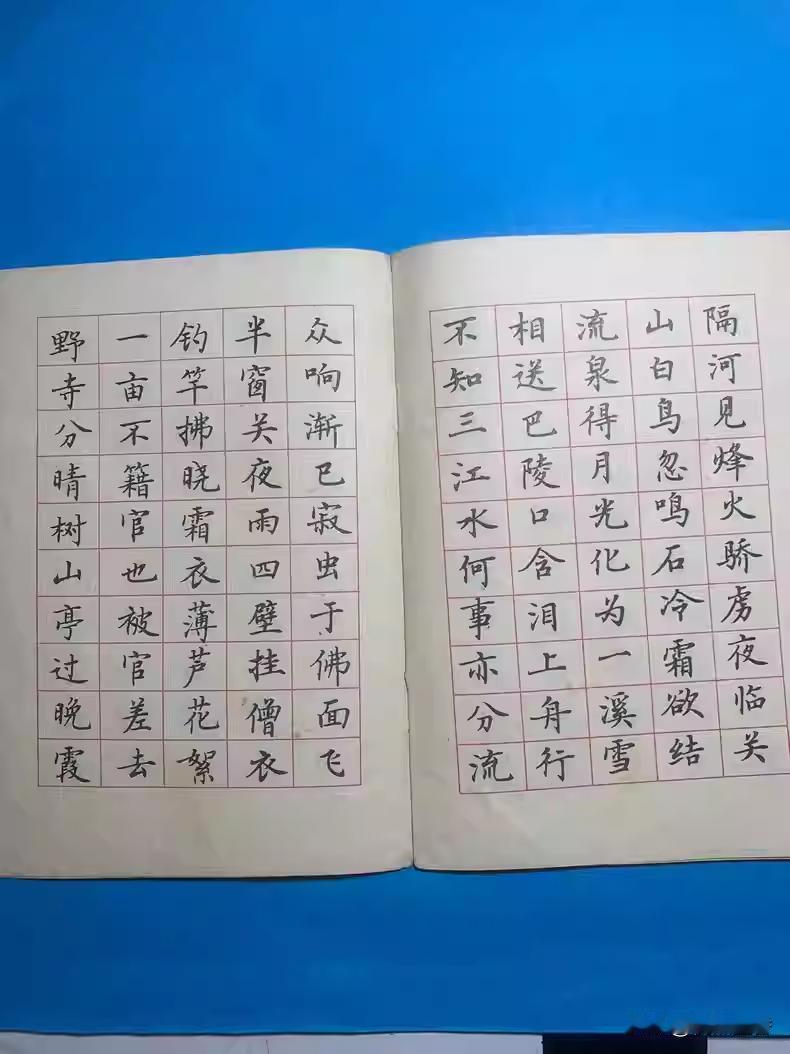 隔河见烽火骄虏夜临关
山白鸟忽鸣石冷霜欲结
流泉得月光化为一溪雪
相送巴陵口含泪上舟行
不知三江水何事亦分流
众响渐已寂虫于佛面飞
半窗关夜雨四壁挂僧衣
钓竿拂晓霜衣薄芦花絮
一亩不籍官也被官差去
野寺分晴树山亭过晚霞